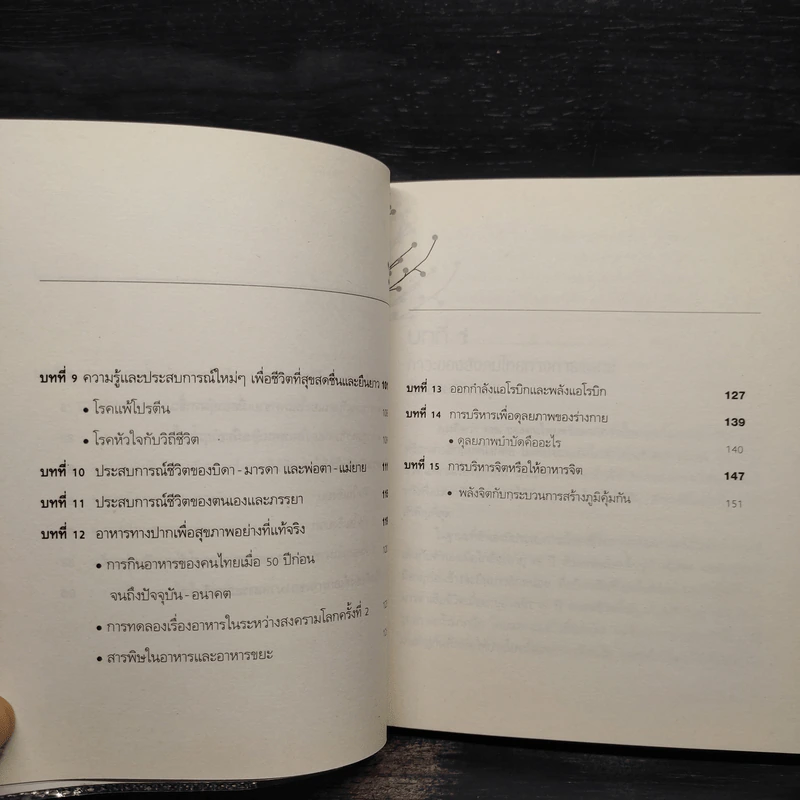 บทที่ 9 ความรู้และประสบการณ์ใหม่ๆ เพื่อชีวิตที่สุขสดชื่นและยืนยาว
• โรคแพ้โปรตีน
• โรคหัวใจกับวิถีชีวิต
บทที่ 10 ประสบการณ์ชีวิตของบิดา - มารดา และพ่อตา - แม่ยาย
บทที่ 11 ประสบการณ์ชีวิตของตนเองและภรรยา
บทที่ 12 อาหารทางปากเพื่อสุขภาพอย่างที่แท้จริง
• การกินอาหารของคนไทยเมื่อ 50 ปีก่อน
จนถึงปัจจุบัน - อนาคต
• การทดลองเรื่องอาหารในระหว่างสงครามโลกครั้งที่ 2
• สารพิษในอาหารและอาหารขยะ
บทที่ 13 ออกกำลังแอโรบิกและพลังแอโรบิก 127
บทที่ 14 การบริหารเพื่อดุลยภาพของร่างกาย 139
• ดุลยภาพบำบัดคืออะไร 140
บทที่ 15 การบริหารจิตหรือให้อาหารจิต 147
• พลังจิตกับกระบวนการสร้างภูมิคุ้มกัน 151